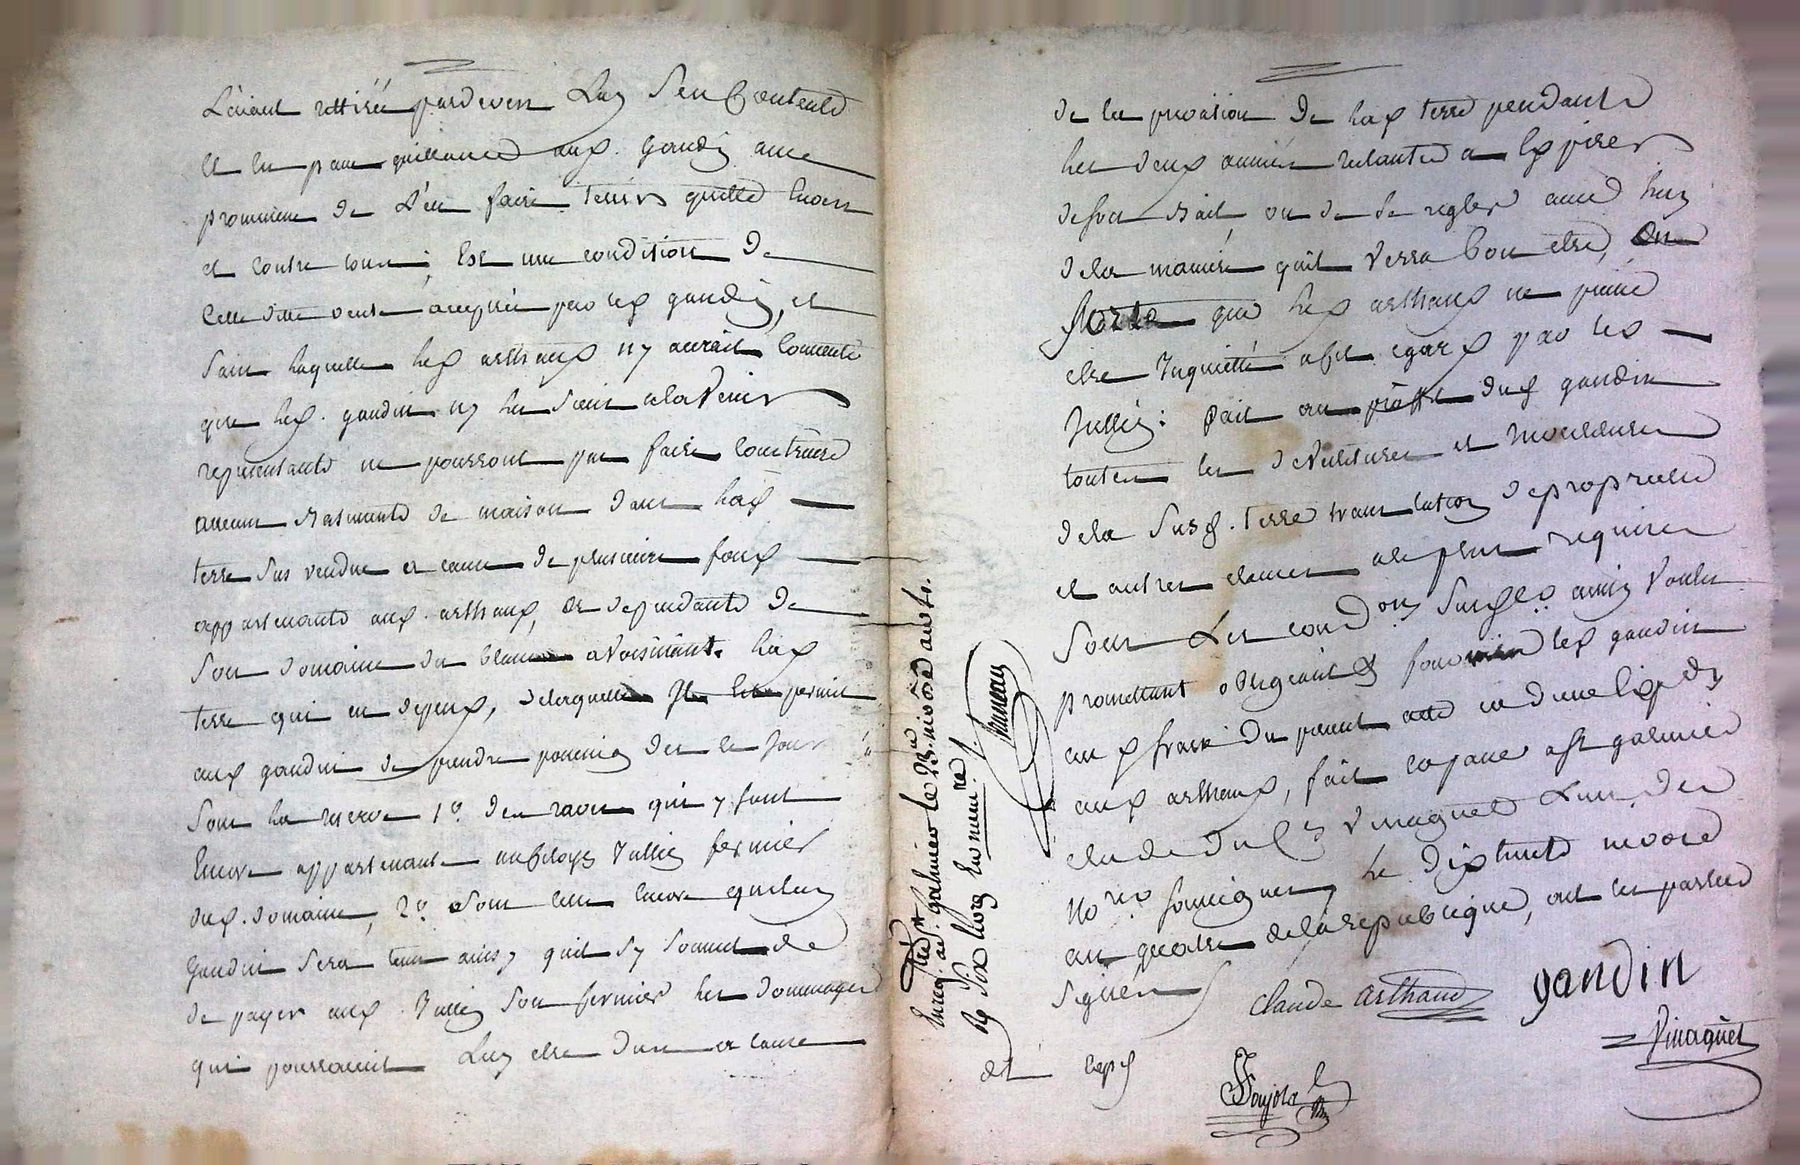 L'aiant rettirée pardevers Luy S'en Contente
et en passe quittance aux. Gaudin avec
promesse de L'en faire tenir quitte Envers
et contre tous; Est une condition de
Cette ditte vente acceptée par lesd gaudin, et
Sans laquelle led arthaud n'y aurait Consenti
que led. gaudin ny les Siens alavenir
representants ne pourront pas faire Construire
aucuns Batiments de maison dans lad
terre Sus vendue a cause de plusieurs fonds
appartenants aud. arthaud, et dependants de
Son domaine du avoisinant. lad
terre qui en depend, delaquelle Il est permis
aud gaudin de prendre possession des ce Jour
Sous la reserve 1º. des raves qui y sont
Encore appartenant Jullien fermier
dud. domaine, 2º. Sous celle Encore quelued
Gaudin Sera tenu ainsy quil S'y Soumet de
de payer aud Jullien Son fermier les dommages
qui pourraient Luy etre dus a cause
de la privation de lad terre pendant
les deux années restantes a Expirer
desond Bail ou de Se regler avec luy
dela maniere quil verra bon etre, En
Sorte que led arthaud ne puisse
etre Inquietté a cet egard par led
Jullien: Fait au proffit dud gaudin
toutes les devetitures et Investitures
dela Susd. terre translation de proprieté
et autres clauses a ce plus requises
Sous Les condons Susd ainsy voulu
promettant obligeant & fournira led gaudin
aux frais du present acte et d'une Expedon
aud arthaud, fait et passé a St galmier
etude du Cn Vinaguet L'un des
Nores soussignés, le dix huit nivose
an quatre dela republique, ont les parties
Signés
Claude arthaud gaudin
Vinaguet
et lepd
Pujola
Enregtré a St. galmier le 23. nivôse an 4e.
Rs Six Livres En numere.